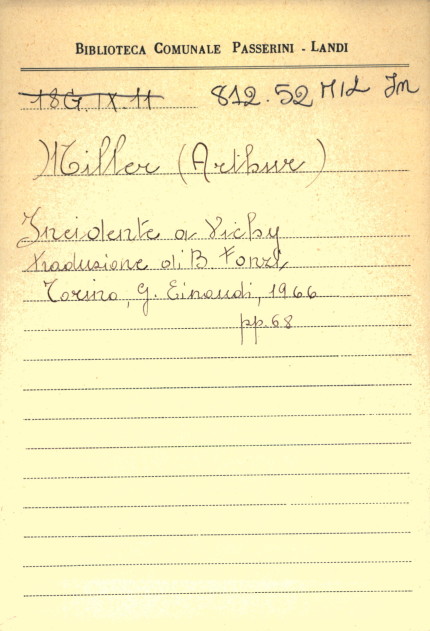 BIBLIOTECA COMUNALE PASSERINI - LANDI
18G. IX. 11 812.52 MIL In
Miller (Arthur)
Incidente a Vichy
traduzione di B. Fonzi,
Torino, G. Einaudi, 1966
pp. 68